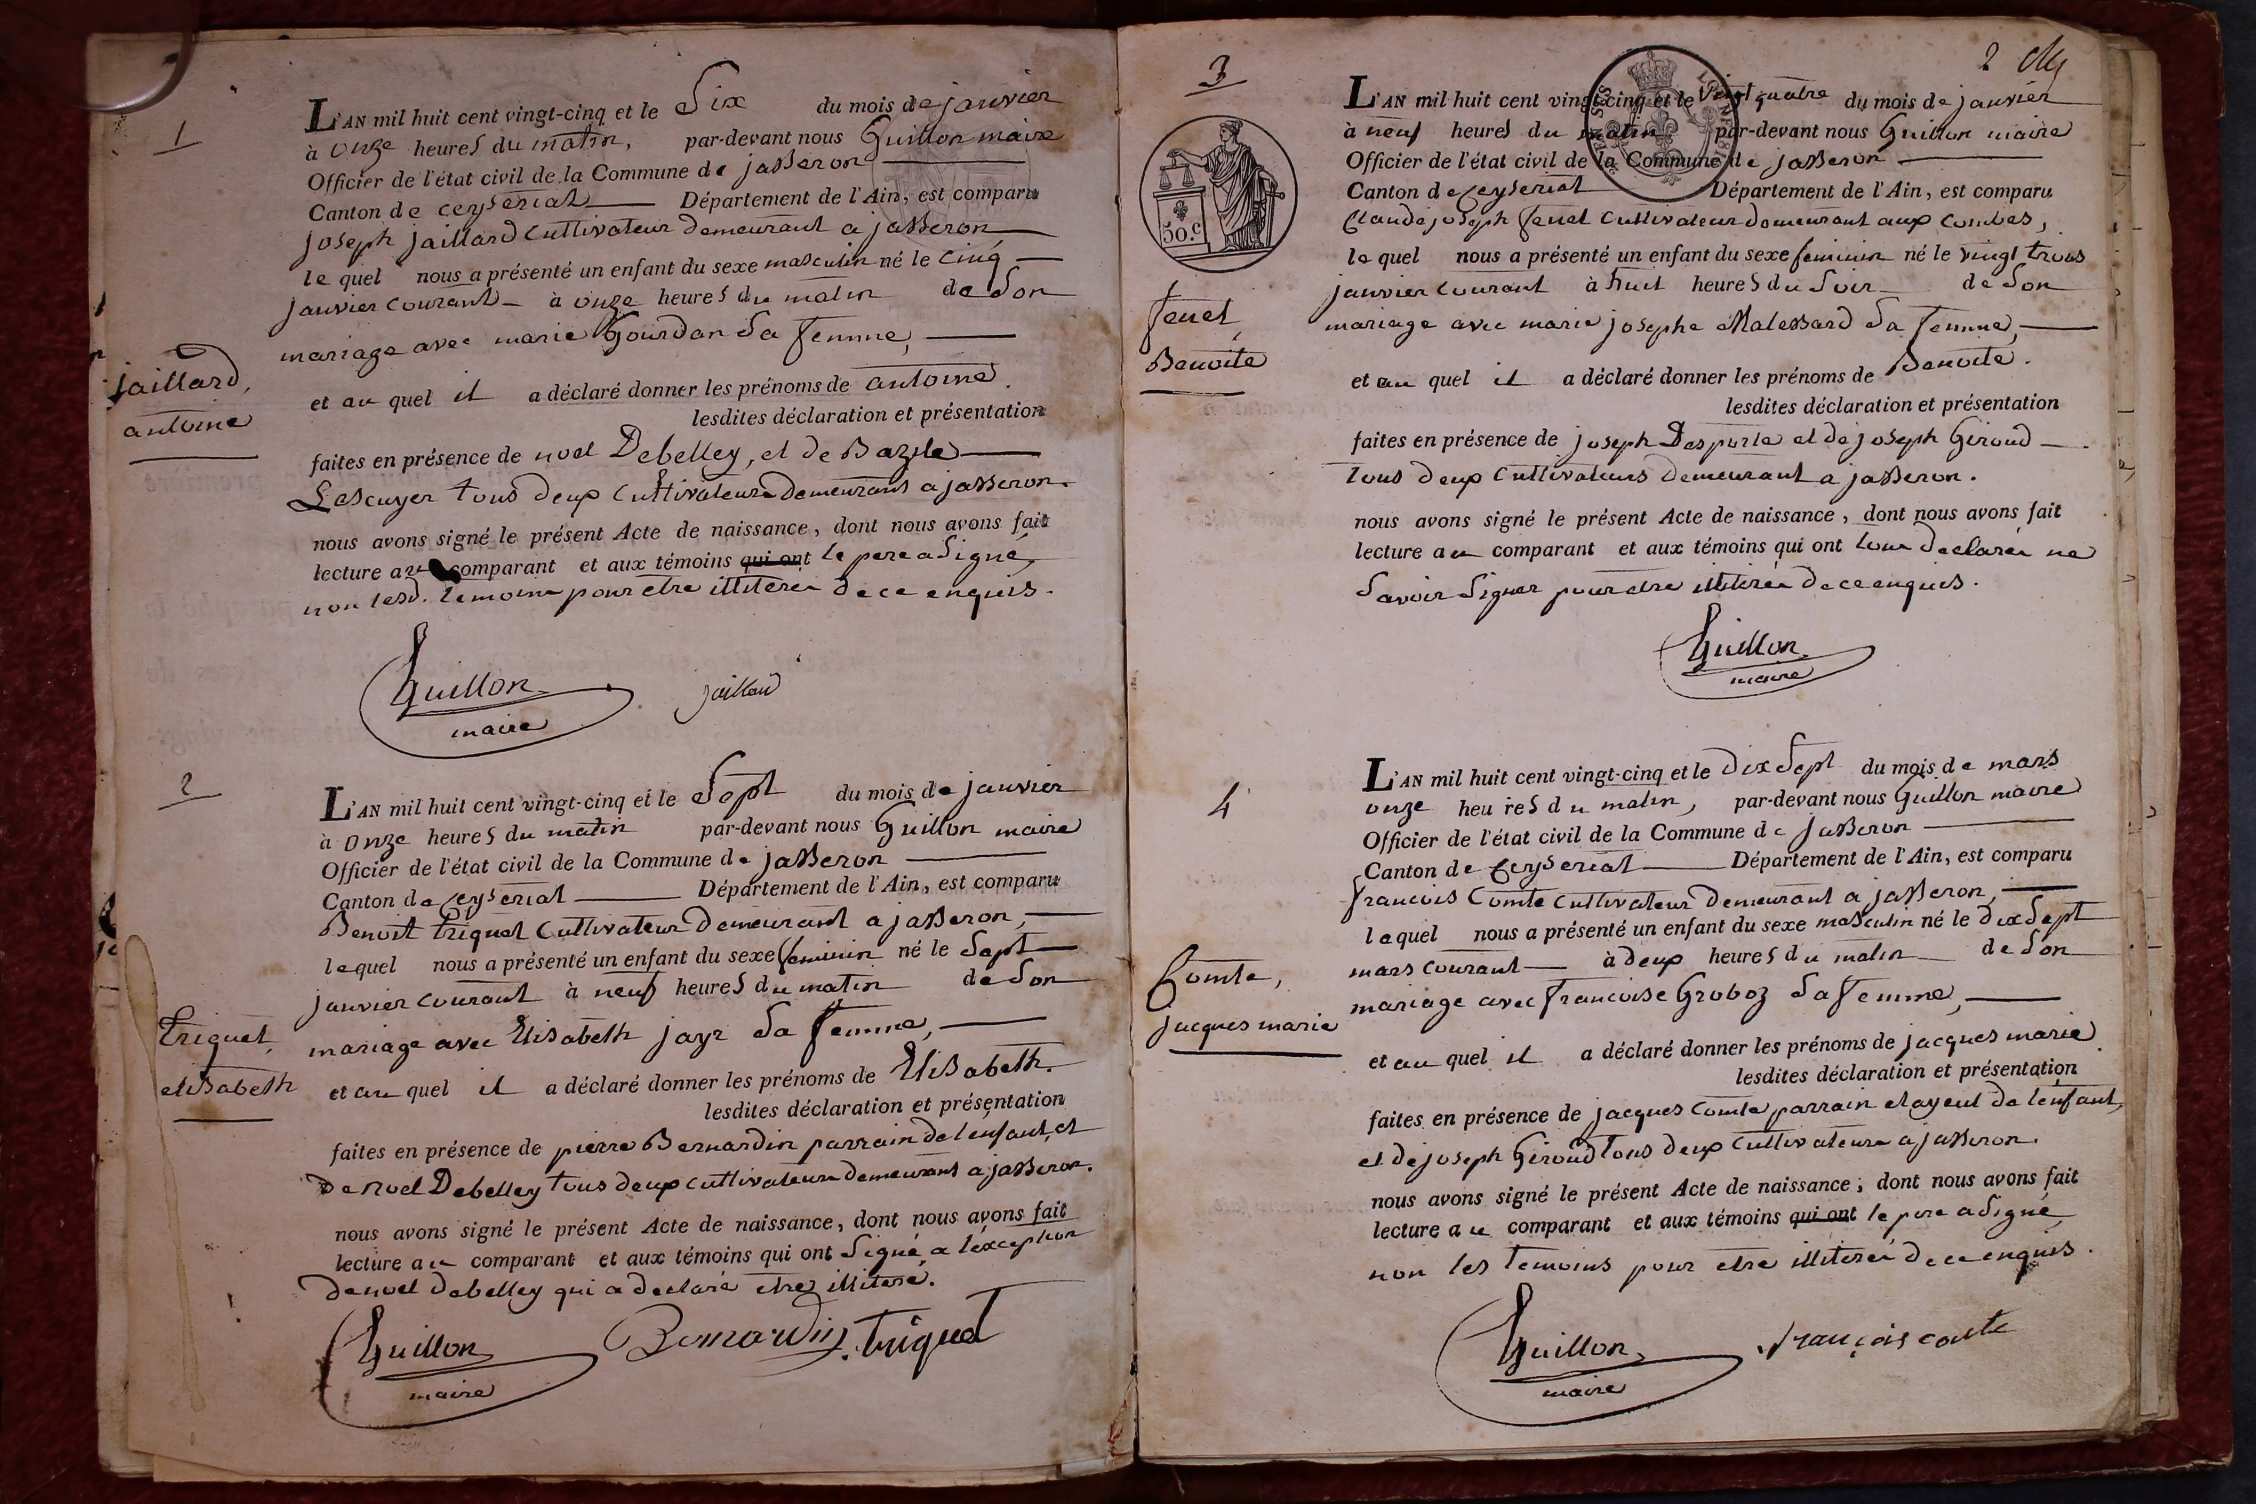 1
L'AN mil huit cent vingt-cinq et le Six du mois de janvier
à onze heures du matin, par-devant nous Guillon maire
Officier de l'état civil de la Commune de jasseron
Canton de ceyseriat Département de l'Ain, est comparu
joseph jaillard cultivateur demeurant a jasseron,
le quel nous a présenté un enfant du sexe masculin né le cinq
janvier courant à onze heures du matin de Son
mariage avec marie Gourdan Sa femme,
jaillard,
antoine
et au quel il a déclaré donner les prénoms de antoine.
lesdites déclaration et présentation
faites en présence de noel Debelley, et de Bazile
Lescuyer tous deux cultivateurs demeurans a jasseron.
nous avons signé le présent Acte de naissance, dont nous avons fait
lecture au comparant et aux témoins qui ont le pere a Signé,
non lesd. temoins pour etre illiterés de ce enquis.
Guillon
maire
jaillard
2
L'AN mil huit cent vingt-cinq et le Sept du mois de janvier
à onze heures du matin par-devant nous Guillon maire
Officier de l'état civil de la Commune de jasseron
Canton de ceyseriat Département de l'Ain, est comparu
Benoit triquet cultivateur demeurant a jasseron,
le quel nous a présenté un enfant du sexe feminin né le Sept
janvier courant à neuf heures du matin de Son
mariage avec Elisabeth jayr Sa femme,
triquet,
elisabeth
et au quel il a déclaré donner les prénoms de Elisabeth.
lesdites déclaration et présentation
faites en présence de pierre Bernardin parrain de lenfant, et
de noel Debelley tous deux cultivateurs demeurans a jasseron.
nous avons signé le présent Acte de naissance, dont nous avons fait
lecture au comparant et aux témoins qui ont Signé a lexception
de noel debelley qui a declaré etre illiteré.
Guillon
maire
Bernardin triquet
2
3
L'AN mil huit cent vingt-cinq et le vingt quatre du mois de janvier
à neuf heures du matin par-devant nous Guillon maire
Officier de l'état civil de la Commune de jasseron
Canton de ceyseriat Département de l'Ain, est comparu
Claude joseph feuet cultivateur demeurant aux combes,
50.c
le quel nous a présenté un enfant du sexe feminin né le vingt trois
janvier courant à huit heures du Soir de Son
mariage avec marie josephe Malessard Sa femme,
feuet,
Benoite
et au quel il a déclaré donner les prénoms de Benoite.
lesdites déclaration et présentation
faites en présence de joseph Desporte et de joseph Giroud
tous deux cultivateurs demeurant a jasseron.
nous avons signé le présent Acte de naissance, dont nous avons fait
lecture au comparant et aux témoins qui ont tous declarés ne
Savoir Signer pour etre illiterés de ce enquis.
Guillon
maire
4
L'AN mil huit cent vingt-cinq et le dix Sept du mois de mars
onze heures du matin, par-devant nous Guillon maire
Officier de l'état civil de la Commune de jasseron
Canton de Ceyseriat Département de l'Ain, est comparu
francois Comte cultivateur demeurant a jasseron,
le quel nous a présenté un enfant du sexe masculin né le dix Sept
mars courant à deux heures du matin de Son
mariage avec francoise Groboz Sa femme,
Comte,
jacques marie
et au quel il a déclaré donner les prénoms de jacques marie
lesdites déclaration et présentation
faites en présence de jacques Comte parrain et ayeul de lenfant,
et de joseph Giroud tous deux cultivateurs a jasseron.
nous avons signé le présent Acte de naissance, dont nous avons fait
lecture au comparant et aux témoins qui ont le pere a Signé,
non les temoins pour etre illiterés de ce enquis.
Guillon
maire
françois conte